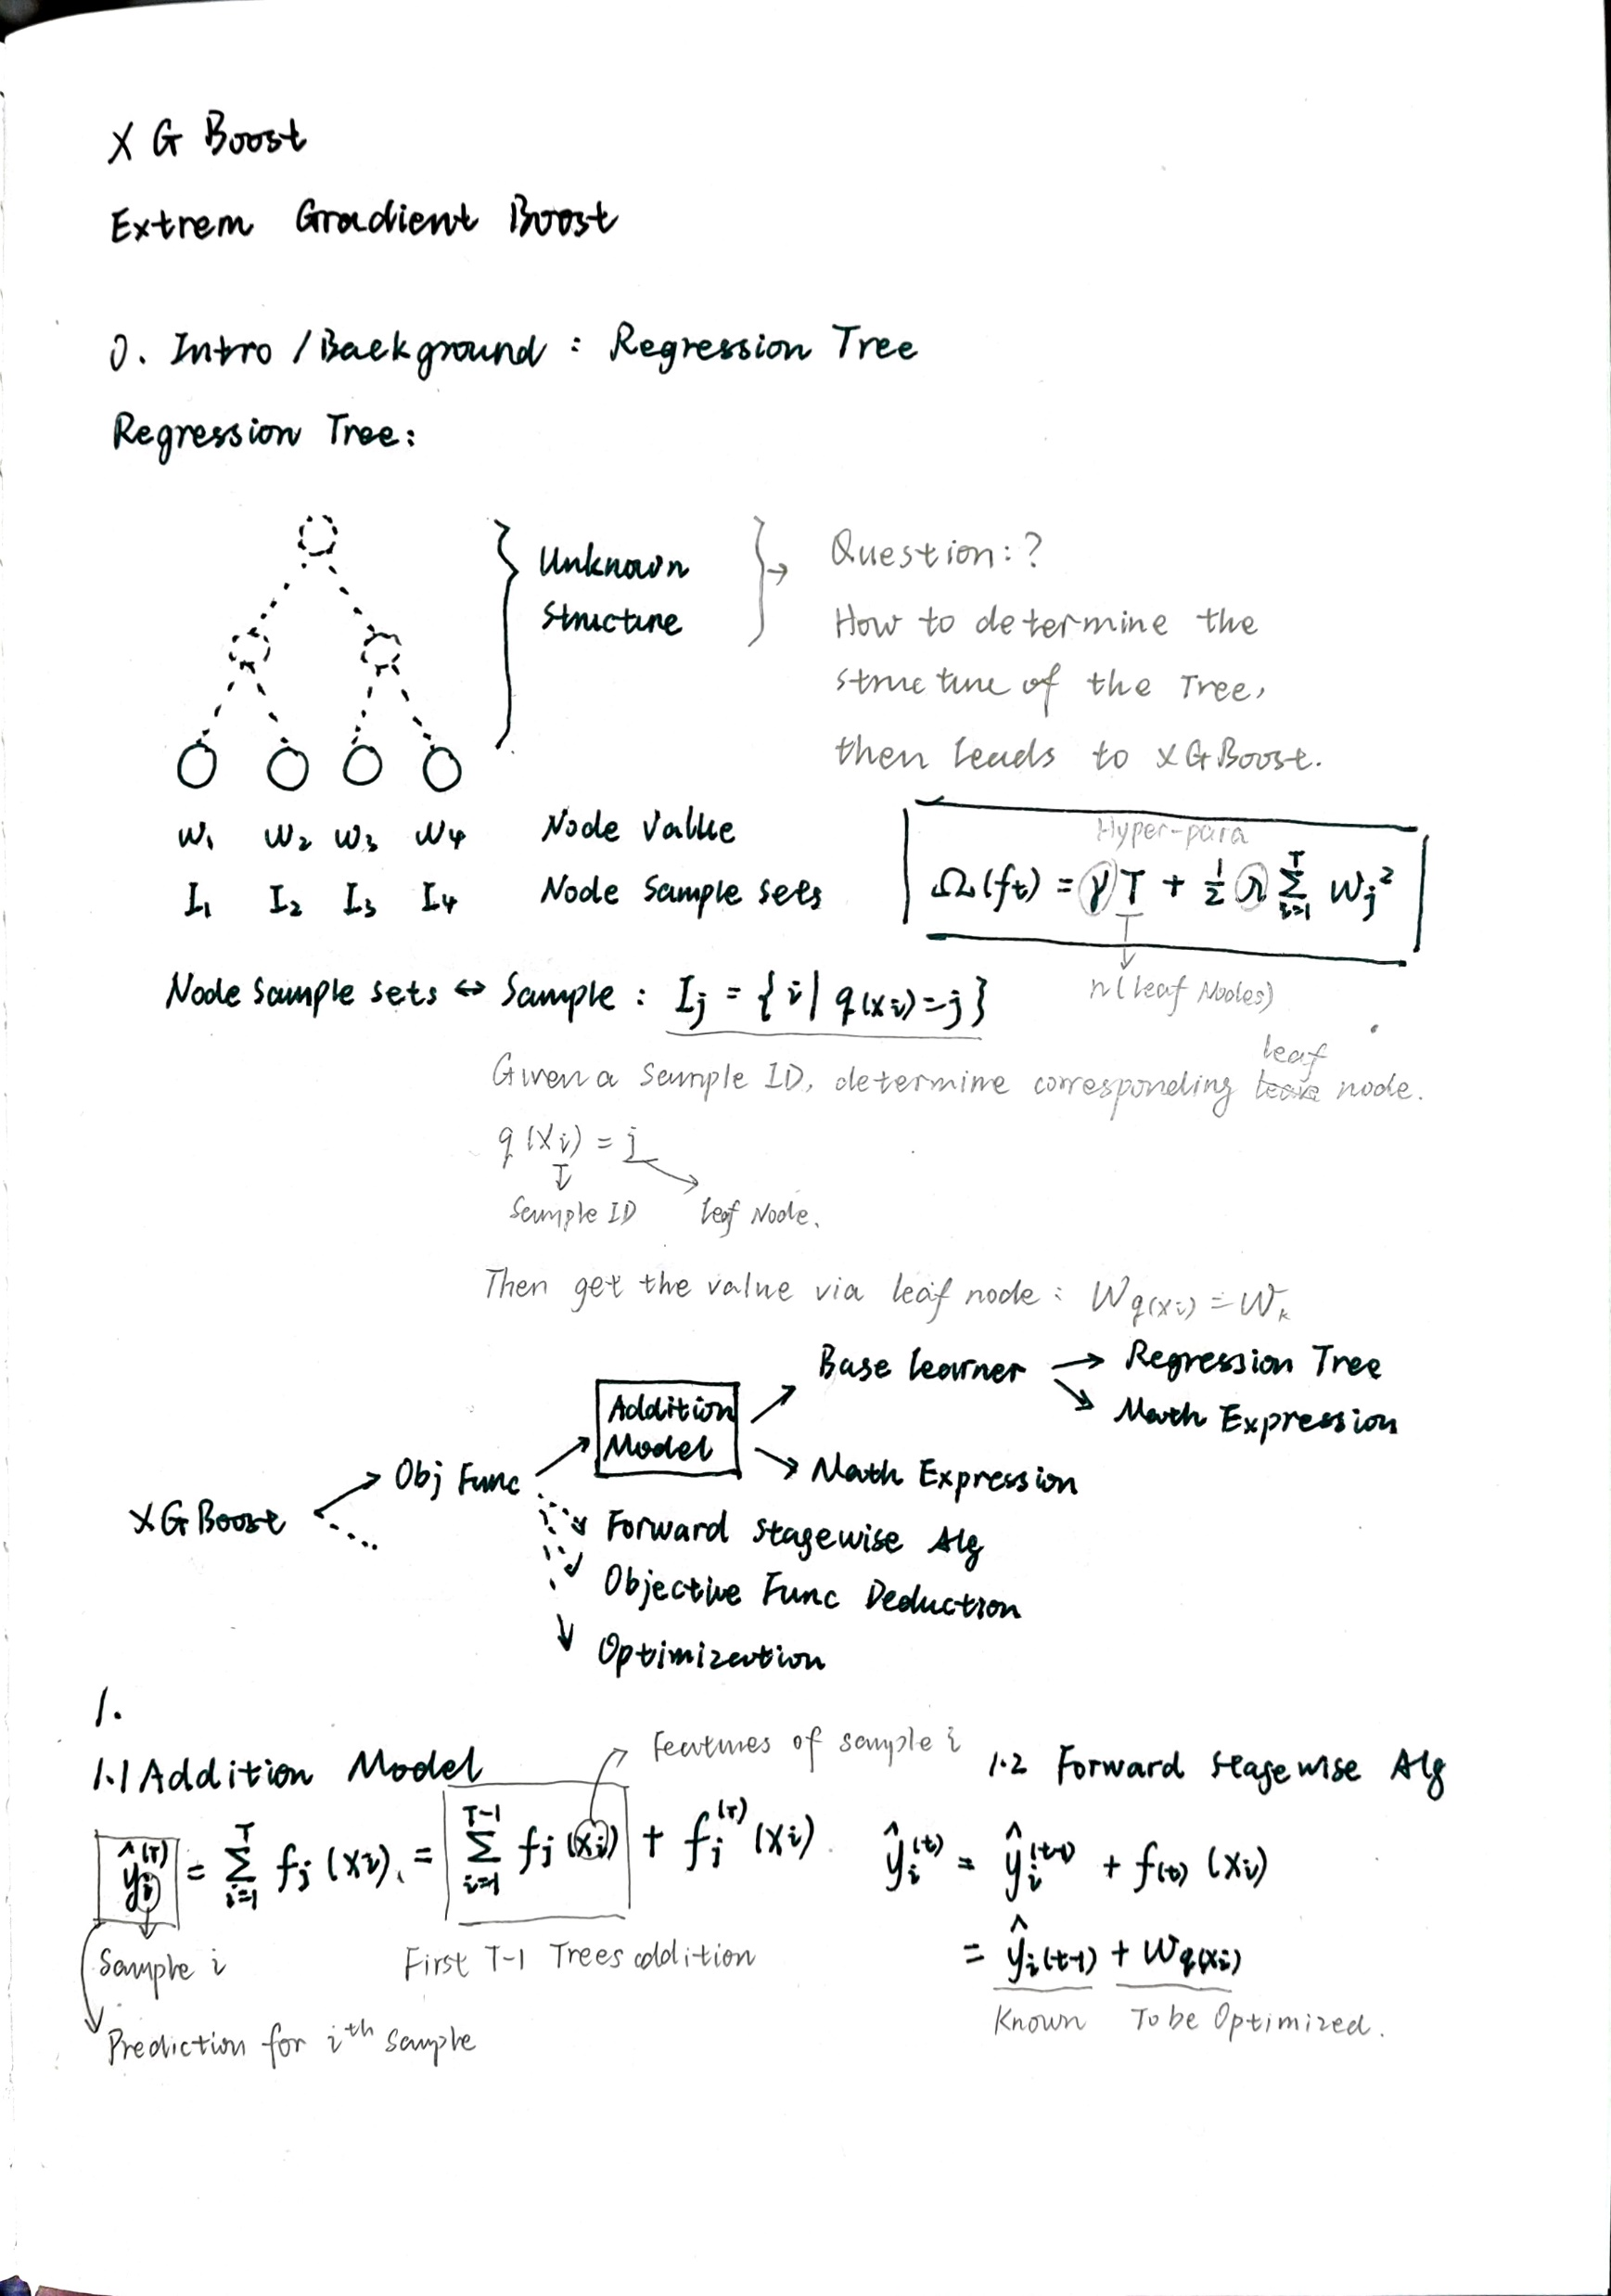 XG Boost
Extrem Gradient Boost
0. Intro / Background : Regression Tree
Regression Tree:
Unknown
Structure
Question: ?
How to determine the
structure of the Tree,
then leads to XGBoost.
W₁ W₂ W₃ W₄ Node Value
I₁ I₂ I₃ I₄ Node Sample sets
Hyper-para
Ω(fₜ) = γT + ½ λ Σᵢ₌₁ᵀ Wⱼ²
n(leaf Nodes)
Node sample sets ↔ Sample : Iⱼ = { i | q(xᵢ)=j }
Given a Sample ID, determine corresponding leaf node.
q(xᵢ) = j
Sample ID leaf Node.
Then get the value via leaf node : W_q(xᵢ) = Wₖ
Base learner → Regression Tree
↘ Math Expression
Addition
Model
Math Expression
XGBoost
Obj Func
Forward Stagewise Alg
Objective Func Deduction
Optimization
1.
1.1 Addition Model
Features of sample i
ŷᵢ^(T) = Σᵢ₌₁^T fⱼ(xᵢ). = Σᵢ₌₁^(T-1) fⱼ(xᵢ) + fⱼ^(T)(xᵢ).
Sample i
First T-1 Trees addition
Prediction for iᵗʰ Sample
1.2 Forward Stagewise Alg
ŷᵢ^(t) = ŷᵢ^(t-1) + f(t)(xᵢ)
= ŷᵢ(t-1) + W_q(xᵢ)
Known To be Optimized.